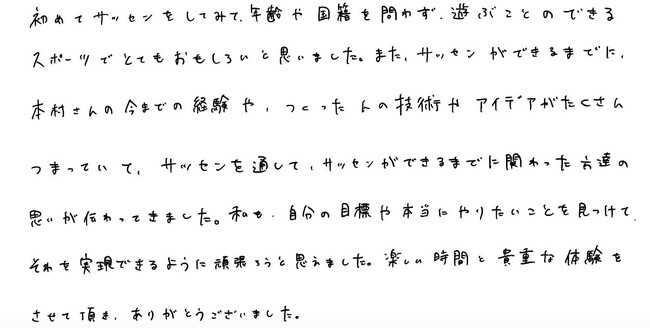 初めてサッセンをしてみて、年齢や国籍を問わず、遊ぶことのできる
スポーツでとてもおもしろいと思いました。また、サッセンができるまでに、
本村さんの今までの経験や、つくった人の技術やアイデアがたくさん
つまっていて、サッセンを通して、サッセンができるまでに関わった方達の
思いが伝わってきました。私も、自分の目標や本当にやりたいことを見つけて、
それを実現できるように頑張ろうと思えました。楽しい時間と貴重な体験を
させて頂き、ありがとうございました。